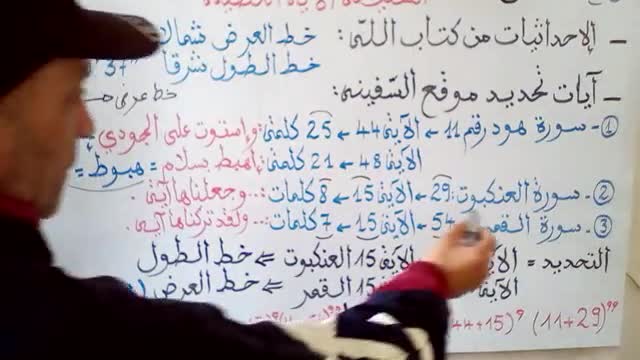 ـ الإحداثيات من كتاب اللّه: خط العرض شمالا
خط الطول شرقا 37
ـ آيات تحديد موقع السّفينة: خط عرض
①ـ سورة هود رقم 11 ← الآية 44 ← 25 كلمة: واستوت على الجودي
الآية 48 ← 21 كلمة: اهبط بسلام = هبوط =
②ـ سورة العنكبوت: 29 ← الآية 15 ← 8 كلمات: ...وجعلناها آية.
③ـ سورة القمر 54 ← الآية 15 ← 7 كلمات: ...ولقد تركناها آية..
التحديد = الآية 15 العنكبوت ⇐ خط الطول
الآية 15 القمر ⇐ خط العرض
44+15)° (11+29)°°